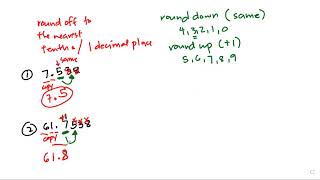 round off to
the nearest
tenths / 1 decimal place
same
① 7.538
copy
7.5
+1
② 61.7538
copy
61.8
round down (same)
4,3,2,1,0
round up (+1)
5,6,7,8,9